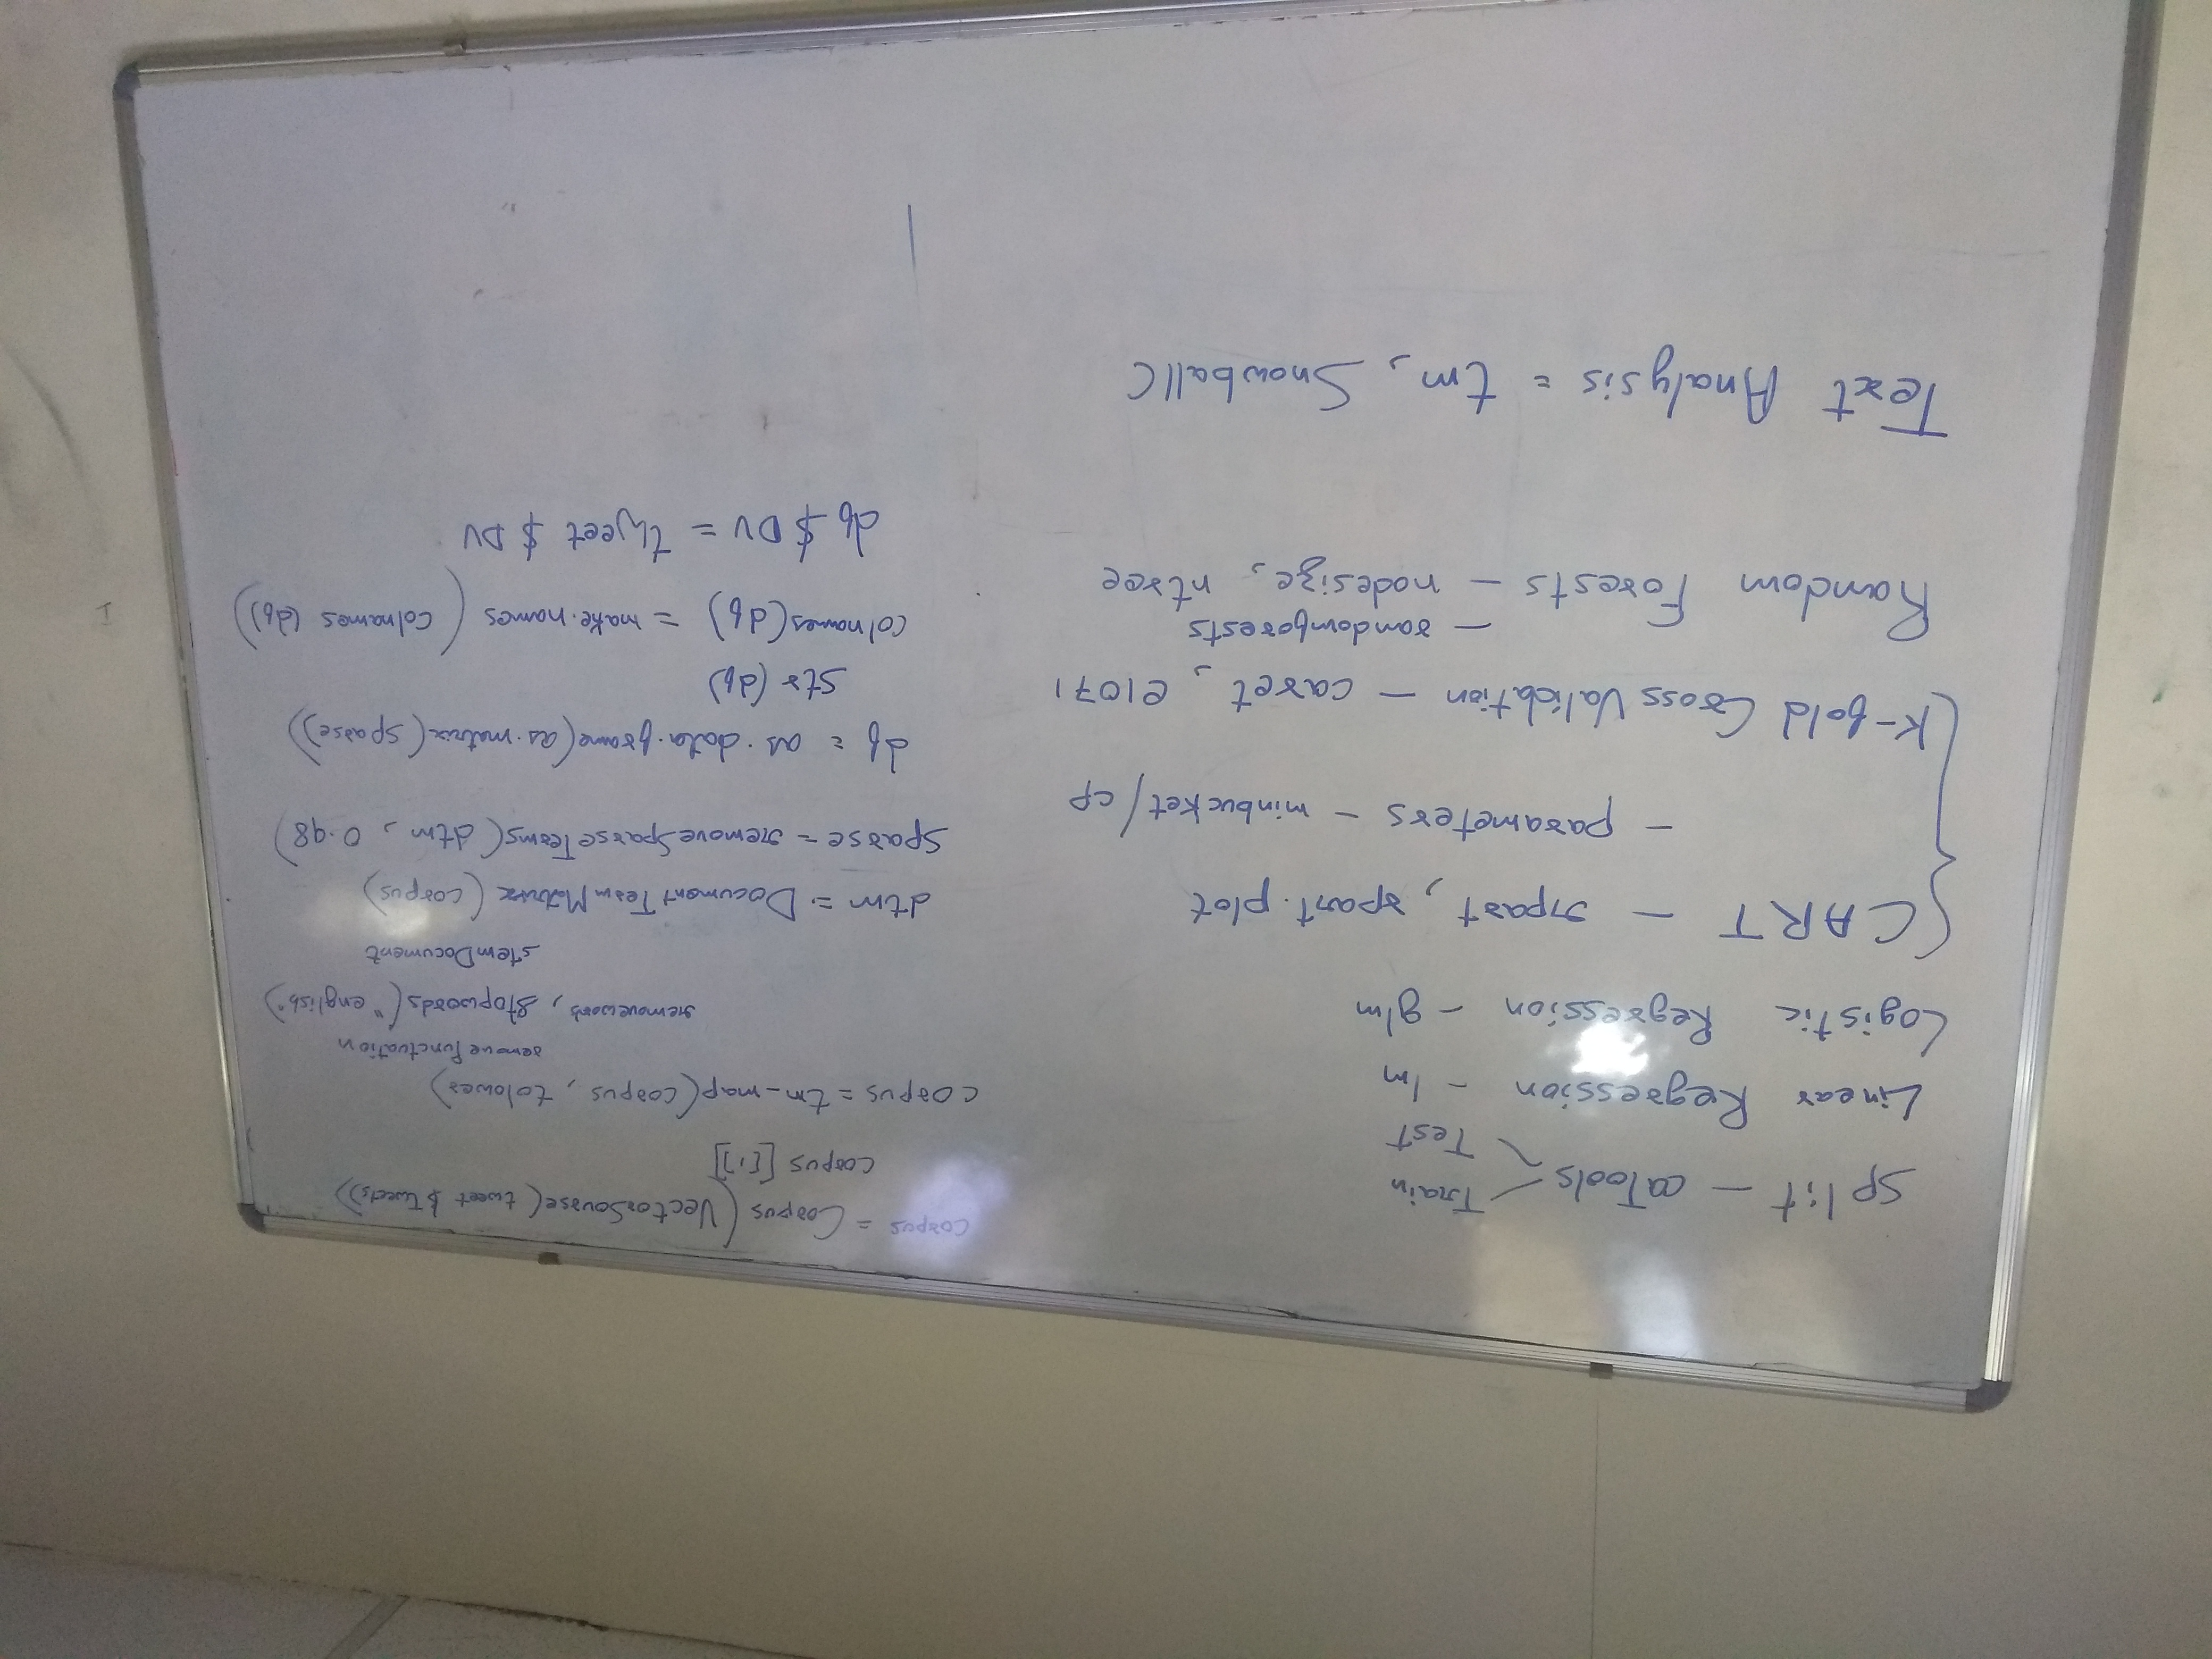 split - caTools
Train
Test
Linear Regression - lm
Logistic Regression - glm
CART - rpart, rpart.plot
- parameters - minbucket/cp
K-fold Cross Validation - caret, e1071
- randomforests
Random Forests - nodesize, ntree
Text Analysis = tm, SnowballC
corpus = Corpus(VectorSourse(tweet $ Tweets))
corpus[[1]]
corpus = tm_map(corpus, tolower)
removePunctuation
removewords, stopwords("english")
stemDocument
dtm = DocumentTermMatrix(corpus)
sparse = removeSparseTerms(dtm, 0.98)
df = as.data.frame(as.matrix(sparse))
str(df)
colnames(df) = make.names(colnames(df))
df $ DV = tweet $ DV